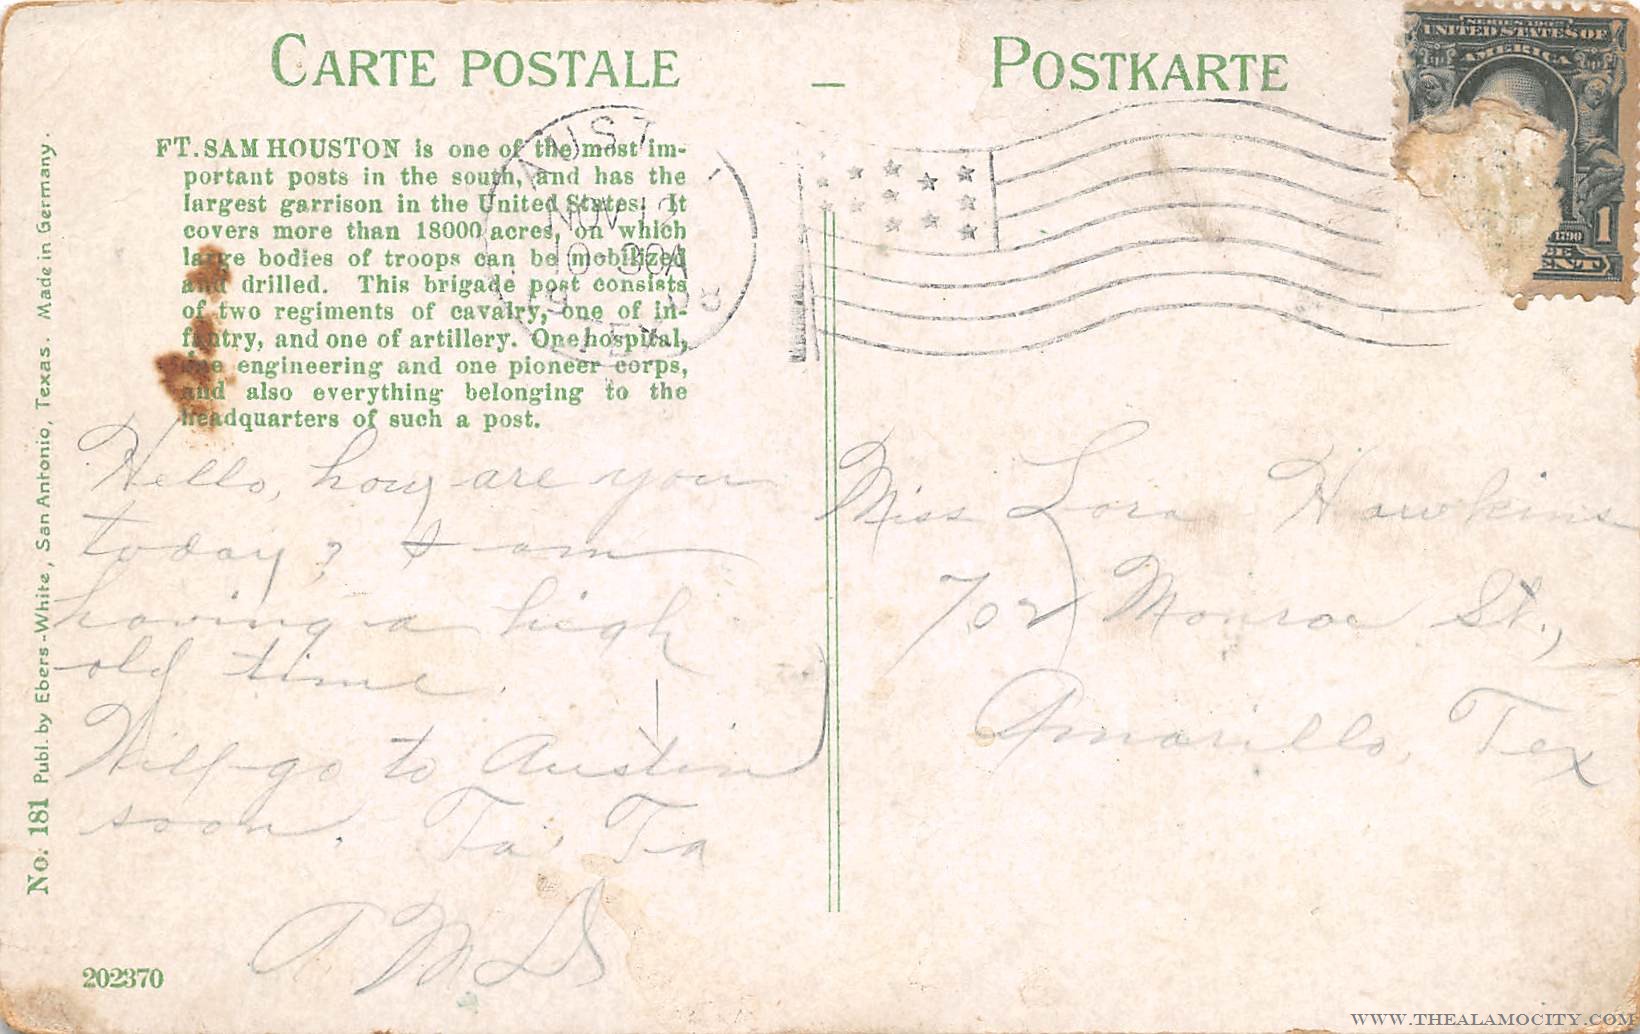 CARTE POSTALE – POSTKARTE
FT. SAM HOUSTON is one of the most im-
portant posts in the south, and has the
largest garrison in the United States. It
covers more than 18000 acres, on which
large bodies of troops can be mobilized
and drilled. This brigade post consists
of two regiments of cavalry, one of in-
fantry, and one of artillery. One hospital,
one engineering and one pioneer corps,
and also everything belonging to the
headquarters of such a post.
No. 181 Publ. by Ebers-White, San Antonio, Texas. Made in Germany.
202370
Hello, how are you
today? I am
having a high
old time.
Will go to Austin
soon. Ta, Ta
NOV 12
10 30A
TEX
SERIES 1902
UNITED STATES OF
AMERICA
1790
1
Miss Lora Hawkins
702 Monroe St.,
Amarillo, Tex
WWW.THEALAMOCITY.COM